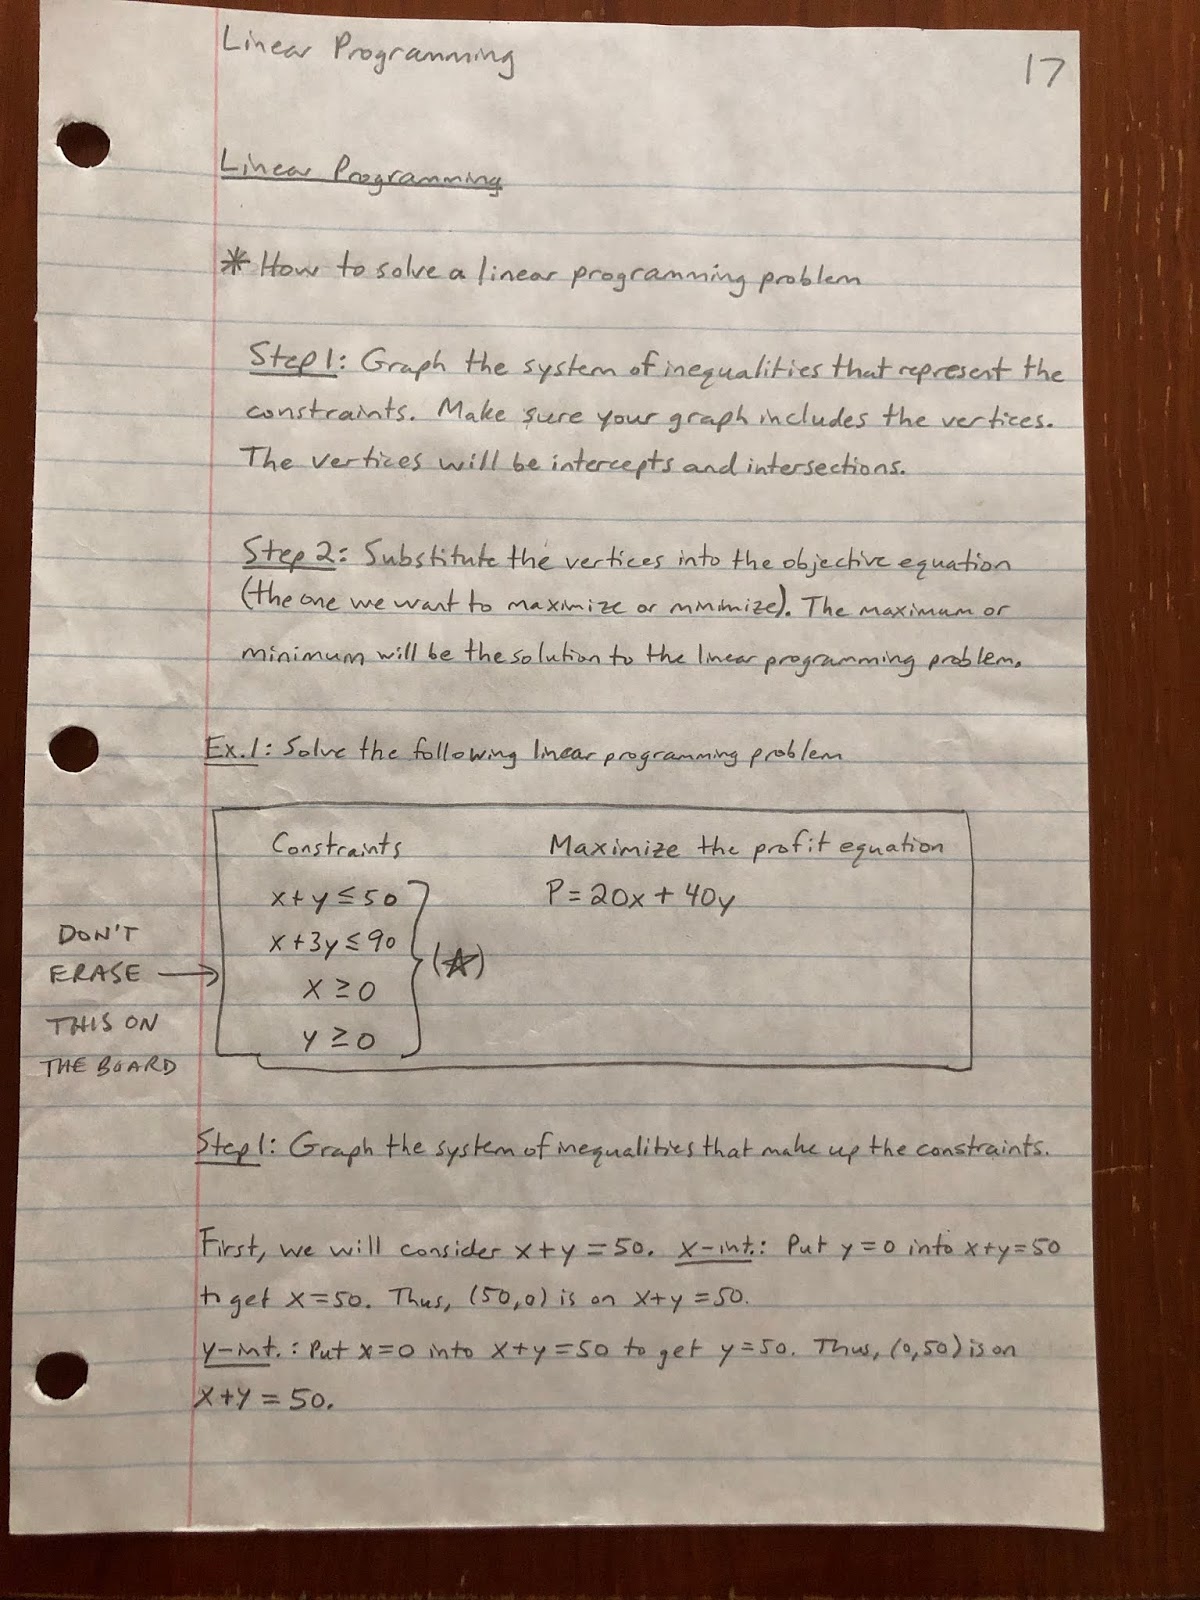 Linear Programming
17
Linear Programming
* How to solve a linear programming problem
Step 1: Graph the system of inequalities that represent the
constraints. Make sure your graph includes the vertices.
The vertices will be intercepts and intersections.
Step 2: Substitute the vertices into the objective equation
(the one we want to maximize or minimize). The maximum or
minimum will be the solution to the linear programming problem.
Ex. 1: Solve the following linear programming problem
Constraints
x+y≤50
x+3y≤90
x≥0
y≥0
(☆)
Maximize the profit equation
P=20x+40y
DON'T
ERASE →
THIS ON
THE BOARD
Step 1: Graph the system of inequalities that make up the constraints.
First, we will consider x+y=50. x-int.: Put y=0 into x+y=50
to get x=50. Thus, (50,0) is on x+y=50.
y-int.: Put x=0 into x+y=50 to get y=50. Thus, (0,50) is on
x+y=50.